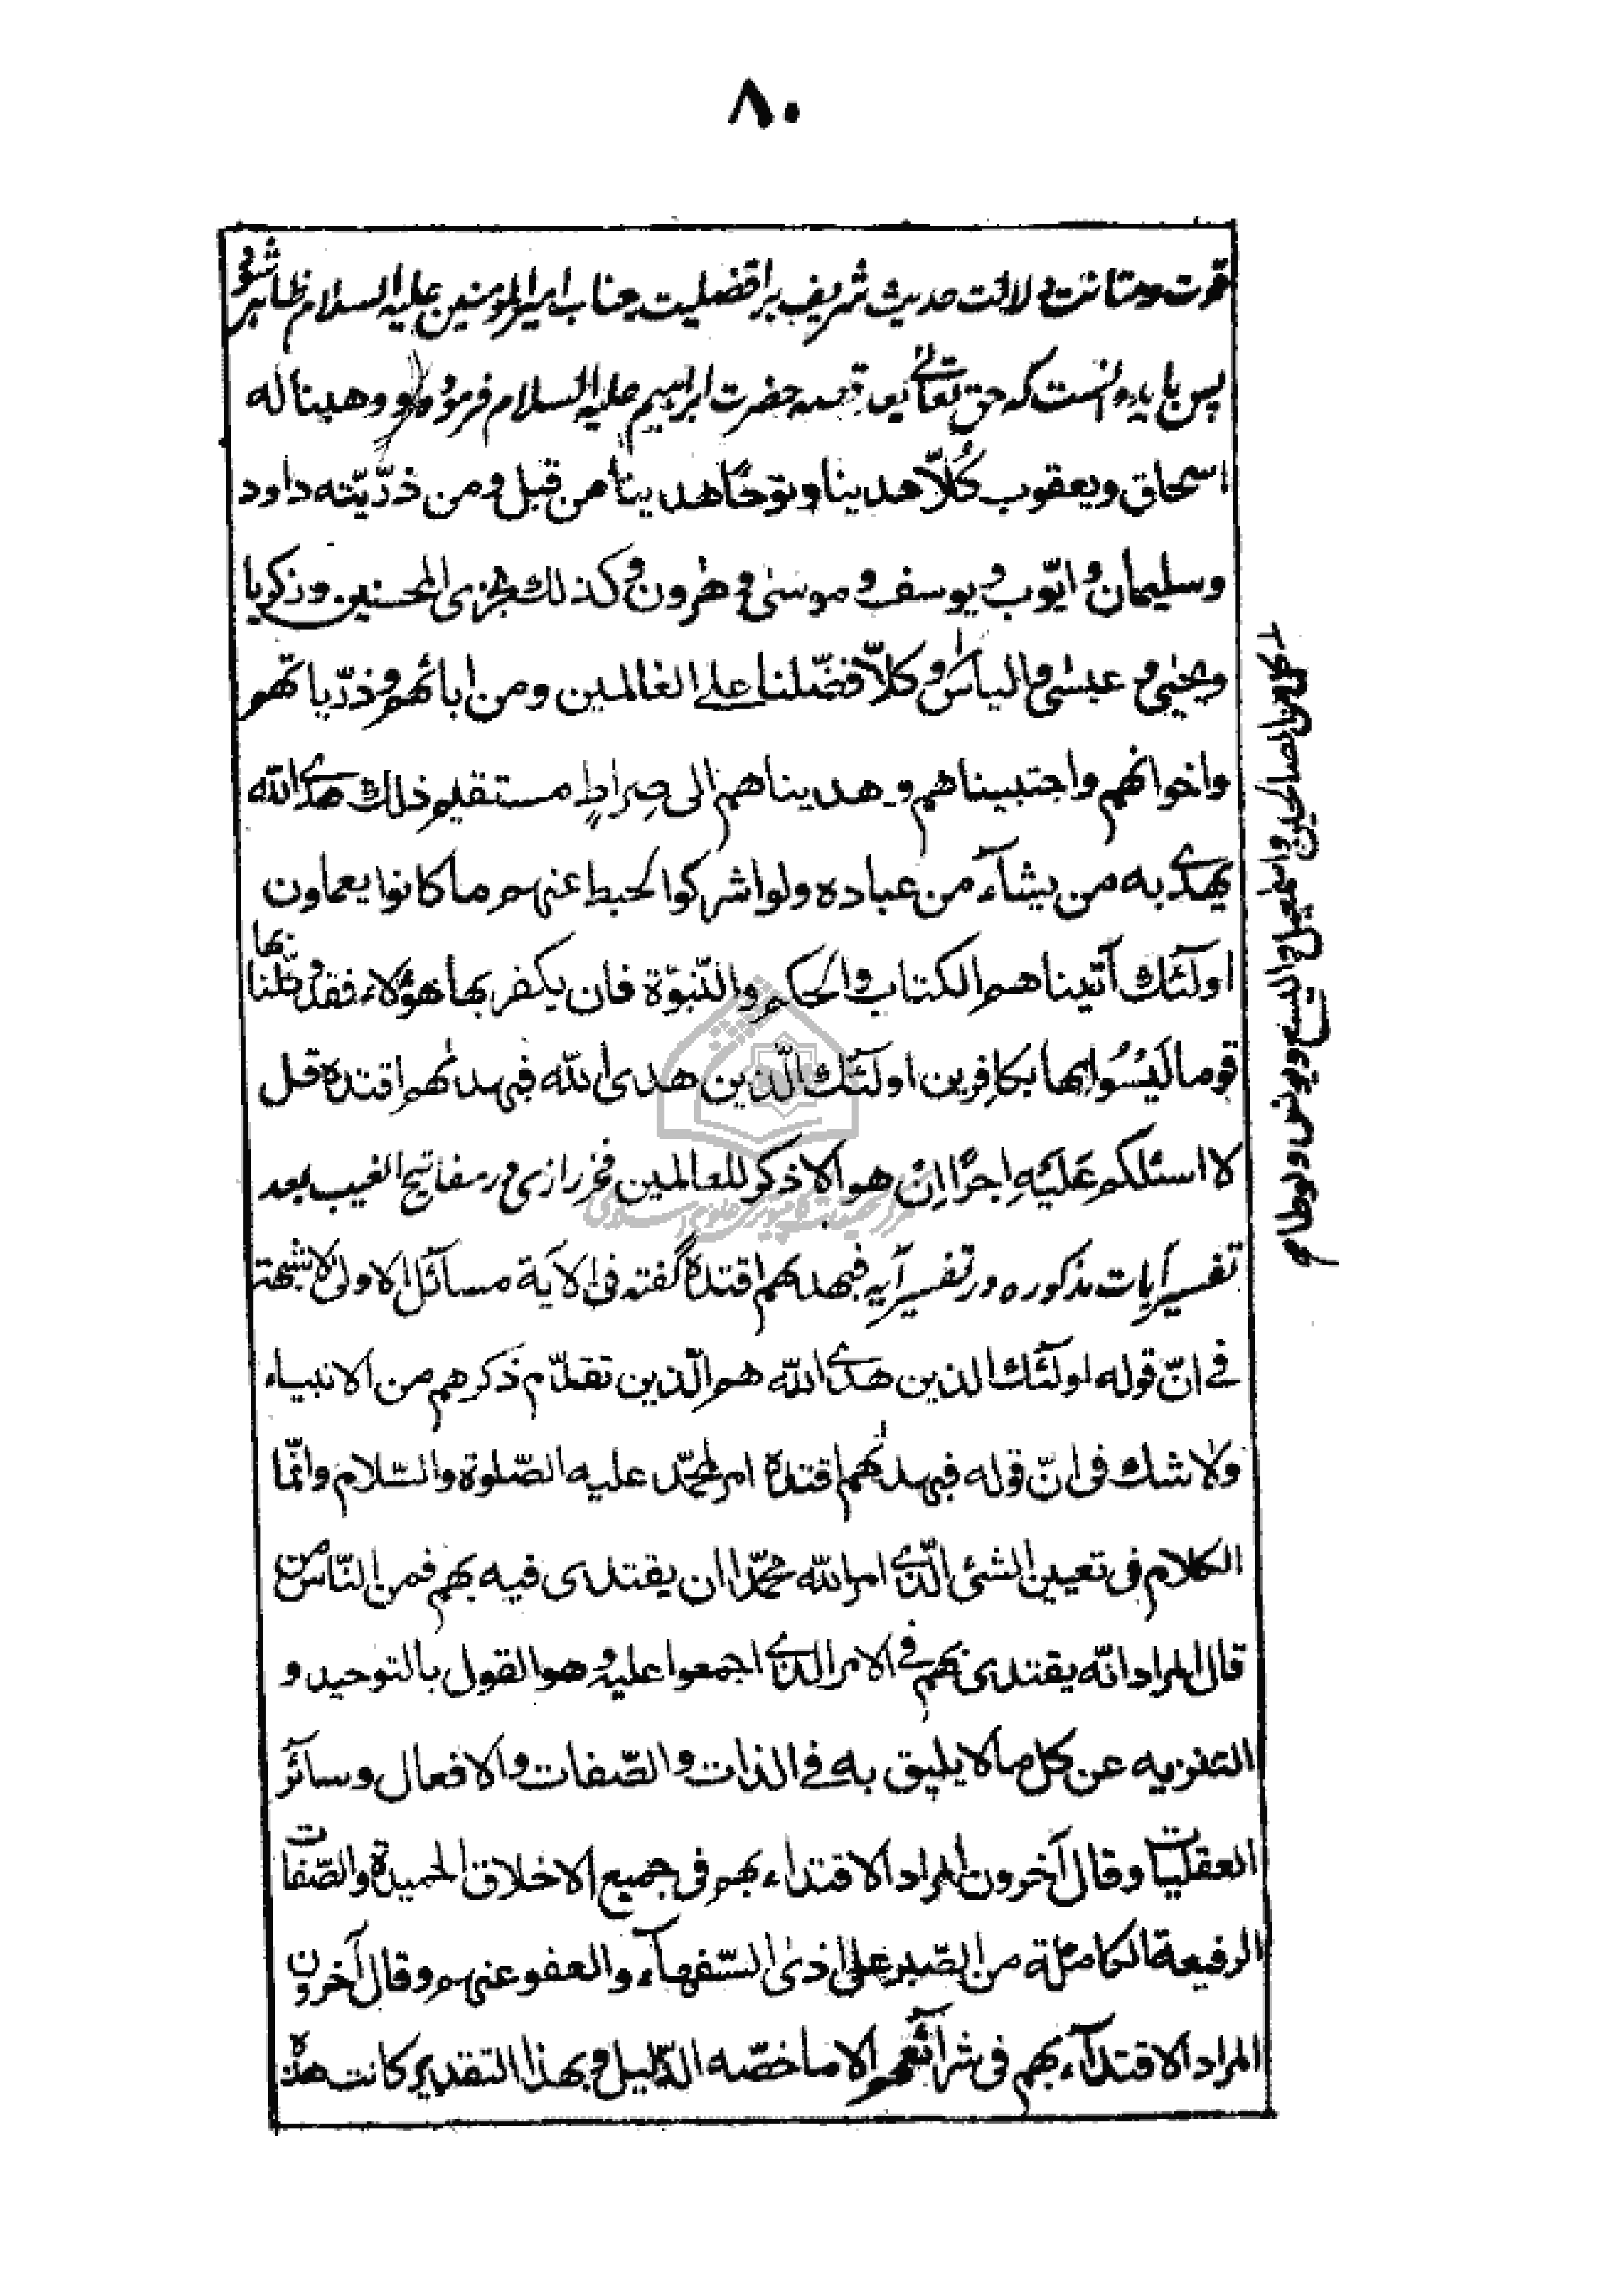 ۸۰
قوت و متانت دلالت حدیث شریف بر افضلیت جناب امیر المومنین علیه السلام ظاهر شود
پس باید دانست که حق تعالی بعد قصه حضرت ابراهیم علیه السلام فرموده و وهبنا له
اسحاق و یعقوب کُلّاً هدینا و نوحًا هدینا من قبل و من ذرّیّته داود
و سلیمان و ایّوب و یوسف و موسیٰ و هٰرون و کذلک نجزی المحسنین و زکریا
و یحییٰ و عیسیٰ و الیاس
کلّ من الصالحین و اسمعیل و الیسع و یونس و لوطا
و کلاًّ فضّلنا علی العالمین و من ابائهم و ذرّیاتهم
و اخوانهم و اجتبیناهم و هدیناهم الی صِراطٍ مستقیم ذلک هدی الله
یهدی به من یشآء من عباده و لو اشرکوا لحبط عنهم ما کانوا یعملون
اولٓئک آتیناهم الکتاب و الحکم و النّبوّة فان یکفر بها هؤلاء فقد وکّلنا بها
قوما لَیْسُوا بها بکافِرین اولٓئک الّذین هدی الله فبهدٰهم اقتده قل
لا اسئلکم عَلَیْهِ اجرًا اِنْ هو الا ذکر للعالمین فخر رازی در مفاتیح الغیب بعد
تفسیر آیات مذکوره در تفسیر آیه فبهدیهم اقتده گفته فی الآیة مسآئل الاولیٰ لا شبهة
فی انّ قوله اولٓئک الذین هدی الله هم الّذین تقدّم ذکرهم من الانبیاء
ولا شک فی انّ قوله فبهدٰهم اقتده امر لمحمّد علیه الصّلوة والسّلام و انّما
الکلام فی تعیین الشئی الّذی امر الله محمّدا ان یقتدی فیه بهم فمن النّاس من
قال المراد انّه یقتدی بهم فی الامر الذی اجمعوا علیه و هو القول بالتوحید و
التنزیه عن کل ما لا یلیق به فی الذات و الصّفات و الافعال و سآئر
العقلیات و قال آخرون المراد الاقتداء بهم فی جمیع الاخلاق الحمیدة والصّفات
الرفیعة الکاملة من الصّبر علی اذی السّفهآء و العفو عنهم و قال آخرون
المراد الاقتدآء بهم فی شرآئعهم الا ما خصّه الدّلیل و بهذا التقدیر کانت هذه